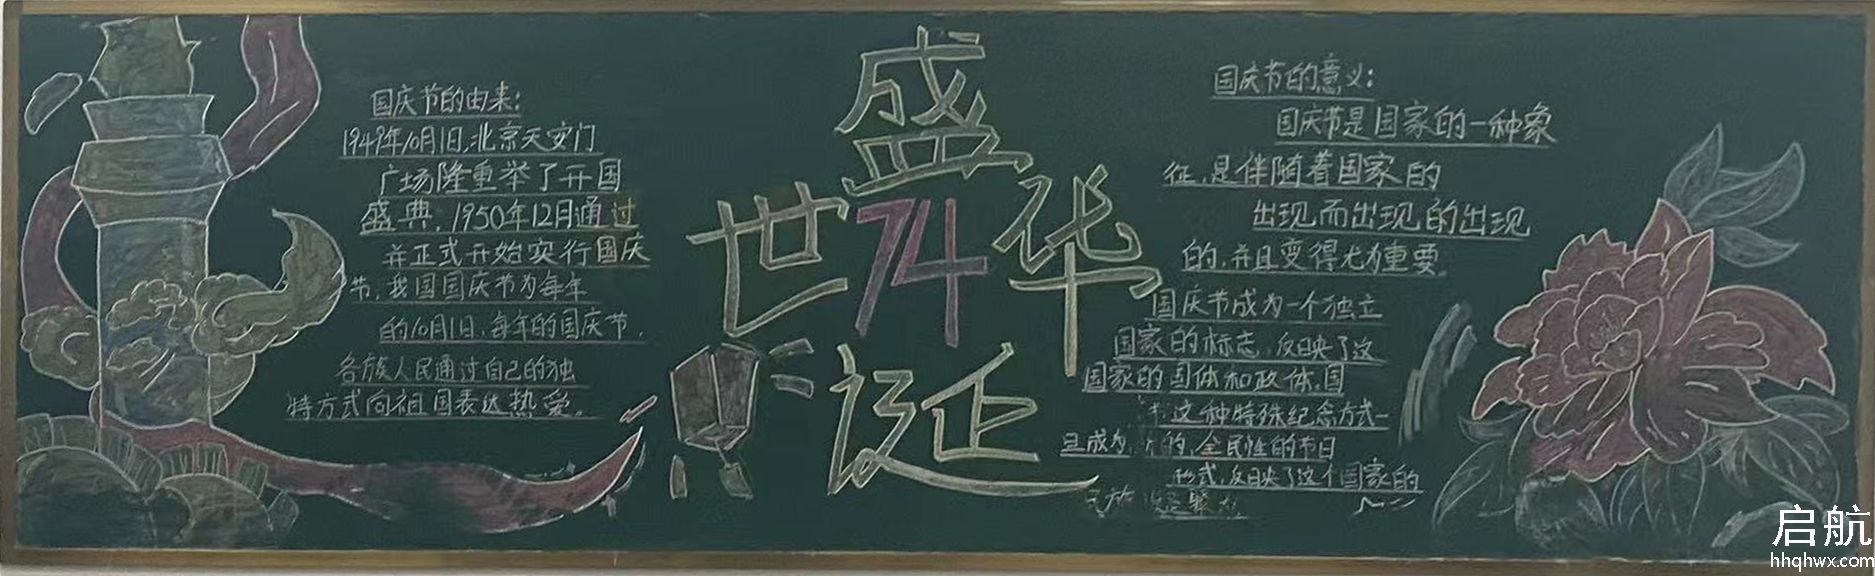 国庆节的由来:
1949年10月1日,北京天安门
广场隆重举了开国
盛典,1950年12月通过
并正式开始实行国庆
节,我国国庆节为每年
的10月1日,每年的国庆节,
各族人民通过自己的独
特方式向祖国表达热爱。
盛
世74华
诞
国庆节的意义:
国庆节是国家的一种象
征,是伴随着国家的
出现而出现的出现
的,并且变得尤为重要。
国庆节成为一个独立
国家的标志,反映了这
国家的国体和政体,国
这种特殊纪念方式一
旦成为 的,全民性的节日
形式,反映了这个国家的
启航
hhqhwx.com